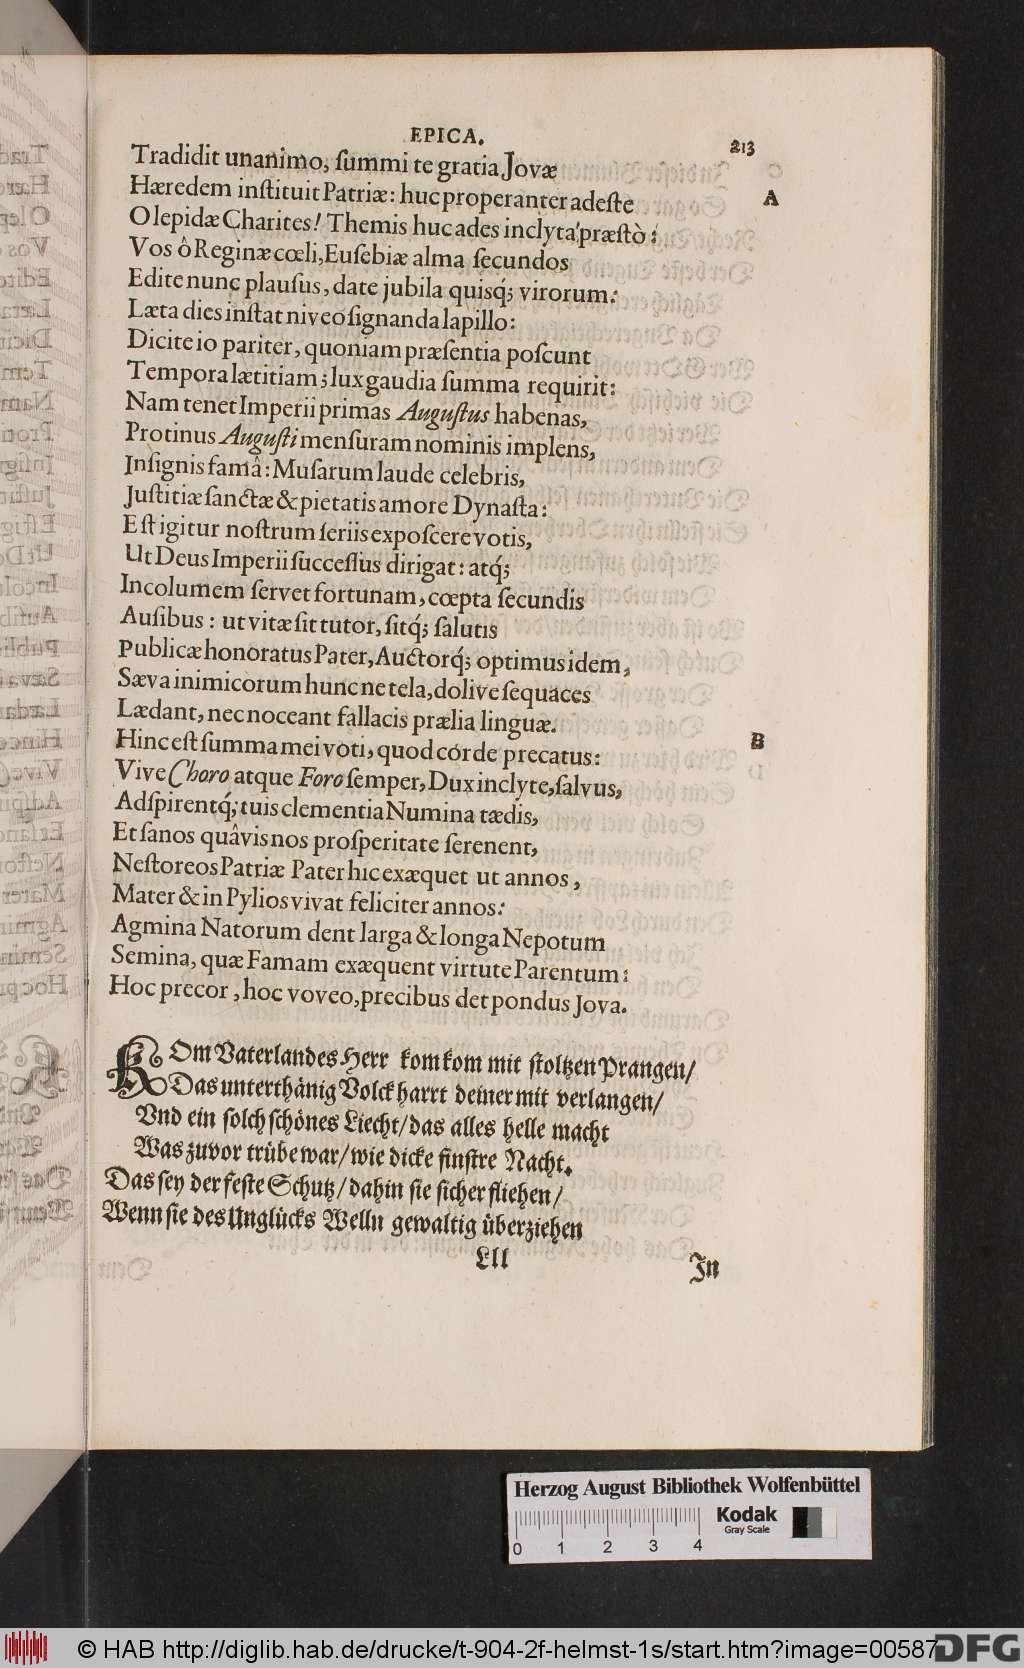 EPICA.
213
Tradidit unanimo, ſummi te gratia Jovæ
Hæredem inſtituit Patriæ: huc properanter adeſte
A
O lepidæ Charites! Themis huc ades inclyta præſtò:
Vos ô Reginæ cœli, Euſebiæ alma ſecundos
Edite nunc plauſus, date jubila quisq́; virorum:
Læta dies inſtat niveo ſignanda lapillo:
Dicite io pariter, quoniam præſentia poſcunt
Tempora lætitiam; lux gaudia ſumma requirit:
Nam tenet Imperii primas Auguſtus habenas,
Protinus Auguſti menſuram nominis implens,
Inſignis famâ: Muſarum laude celebris,
Juſtitiæ ſanctæ & pietatis amore Dynaſta:
Eſt igitur noſtrum ſeriis expoſcere votis,
Ut Deus Imperii ſucceſſus dirigat: atq́;
Incolumem ſervet fortunam, cœpta ſecundis
Auſibus: ut vitæ ſit tutor, ſitq́; ſalutis
Publicæ honoratus Pater, Auctorq́; optimus idem,
Sæva inimicorum hunc ne tela, dolive ſequaces
Lædant, nec noceant fallacis prælia linguæ.
B
Hinc eſt ſumma mei voti, quod corde precatus:
Vive Choro atque Foro ſemper, Dux inclyte, ſalvus,
Adſpirentq́; tuis clementia Numina tædis,
Et ſanos quâvis nos proſperitate ſerenent,
Neſtoreos Patriæ Pater hic exæquet ut annos,
Mater & in Pylios vivat feliciter annos:
Agmina Natorum dent larga & longa Nepotum
Semina, quæ Famam exæquent virtute Parentum:
Hoc precor, hoc voveo, precibus det pondus Jova.
KOm Vaterlandes Herr kom kom mit ſtoltzen Prangen/
Das unterthänig Volck harrt deiner mit verlangen/
Vnd ein ſolch ſchönes Liecht/ das alles helle macht
Was zuvor trübe war/ wie dicke finſtre Nacht.
Das ſey der feſte Schutz/ dahin ſie ſicher fliehen/
Wenn ſie des Unglücks Welln gewaltig überziehen
Lll
In
Herzog August Bibliothek Wolfenbüttel
Kodak
Gray Scale
0 1 2 3 4
© HAB http://diglib.hab.de/drucke/t-904-2f-helmst-1s/start.htm?image=00587
DFG